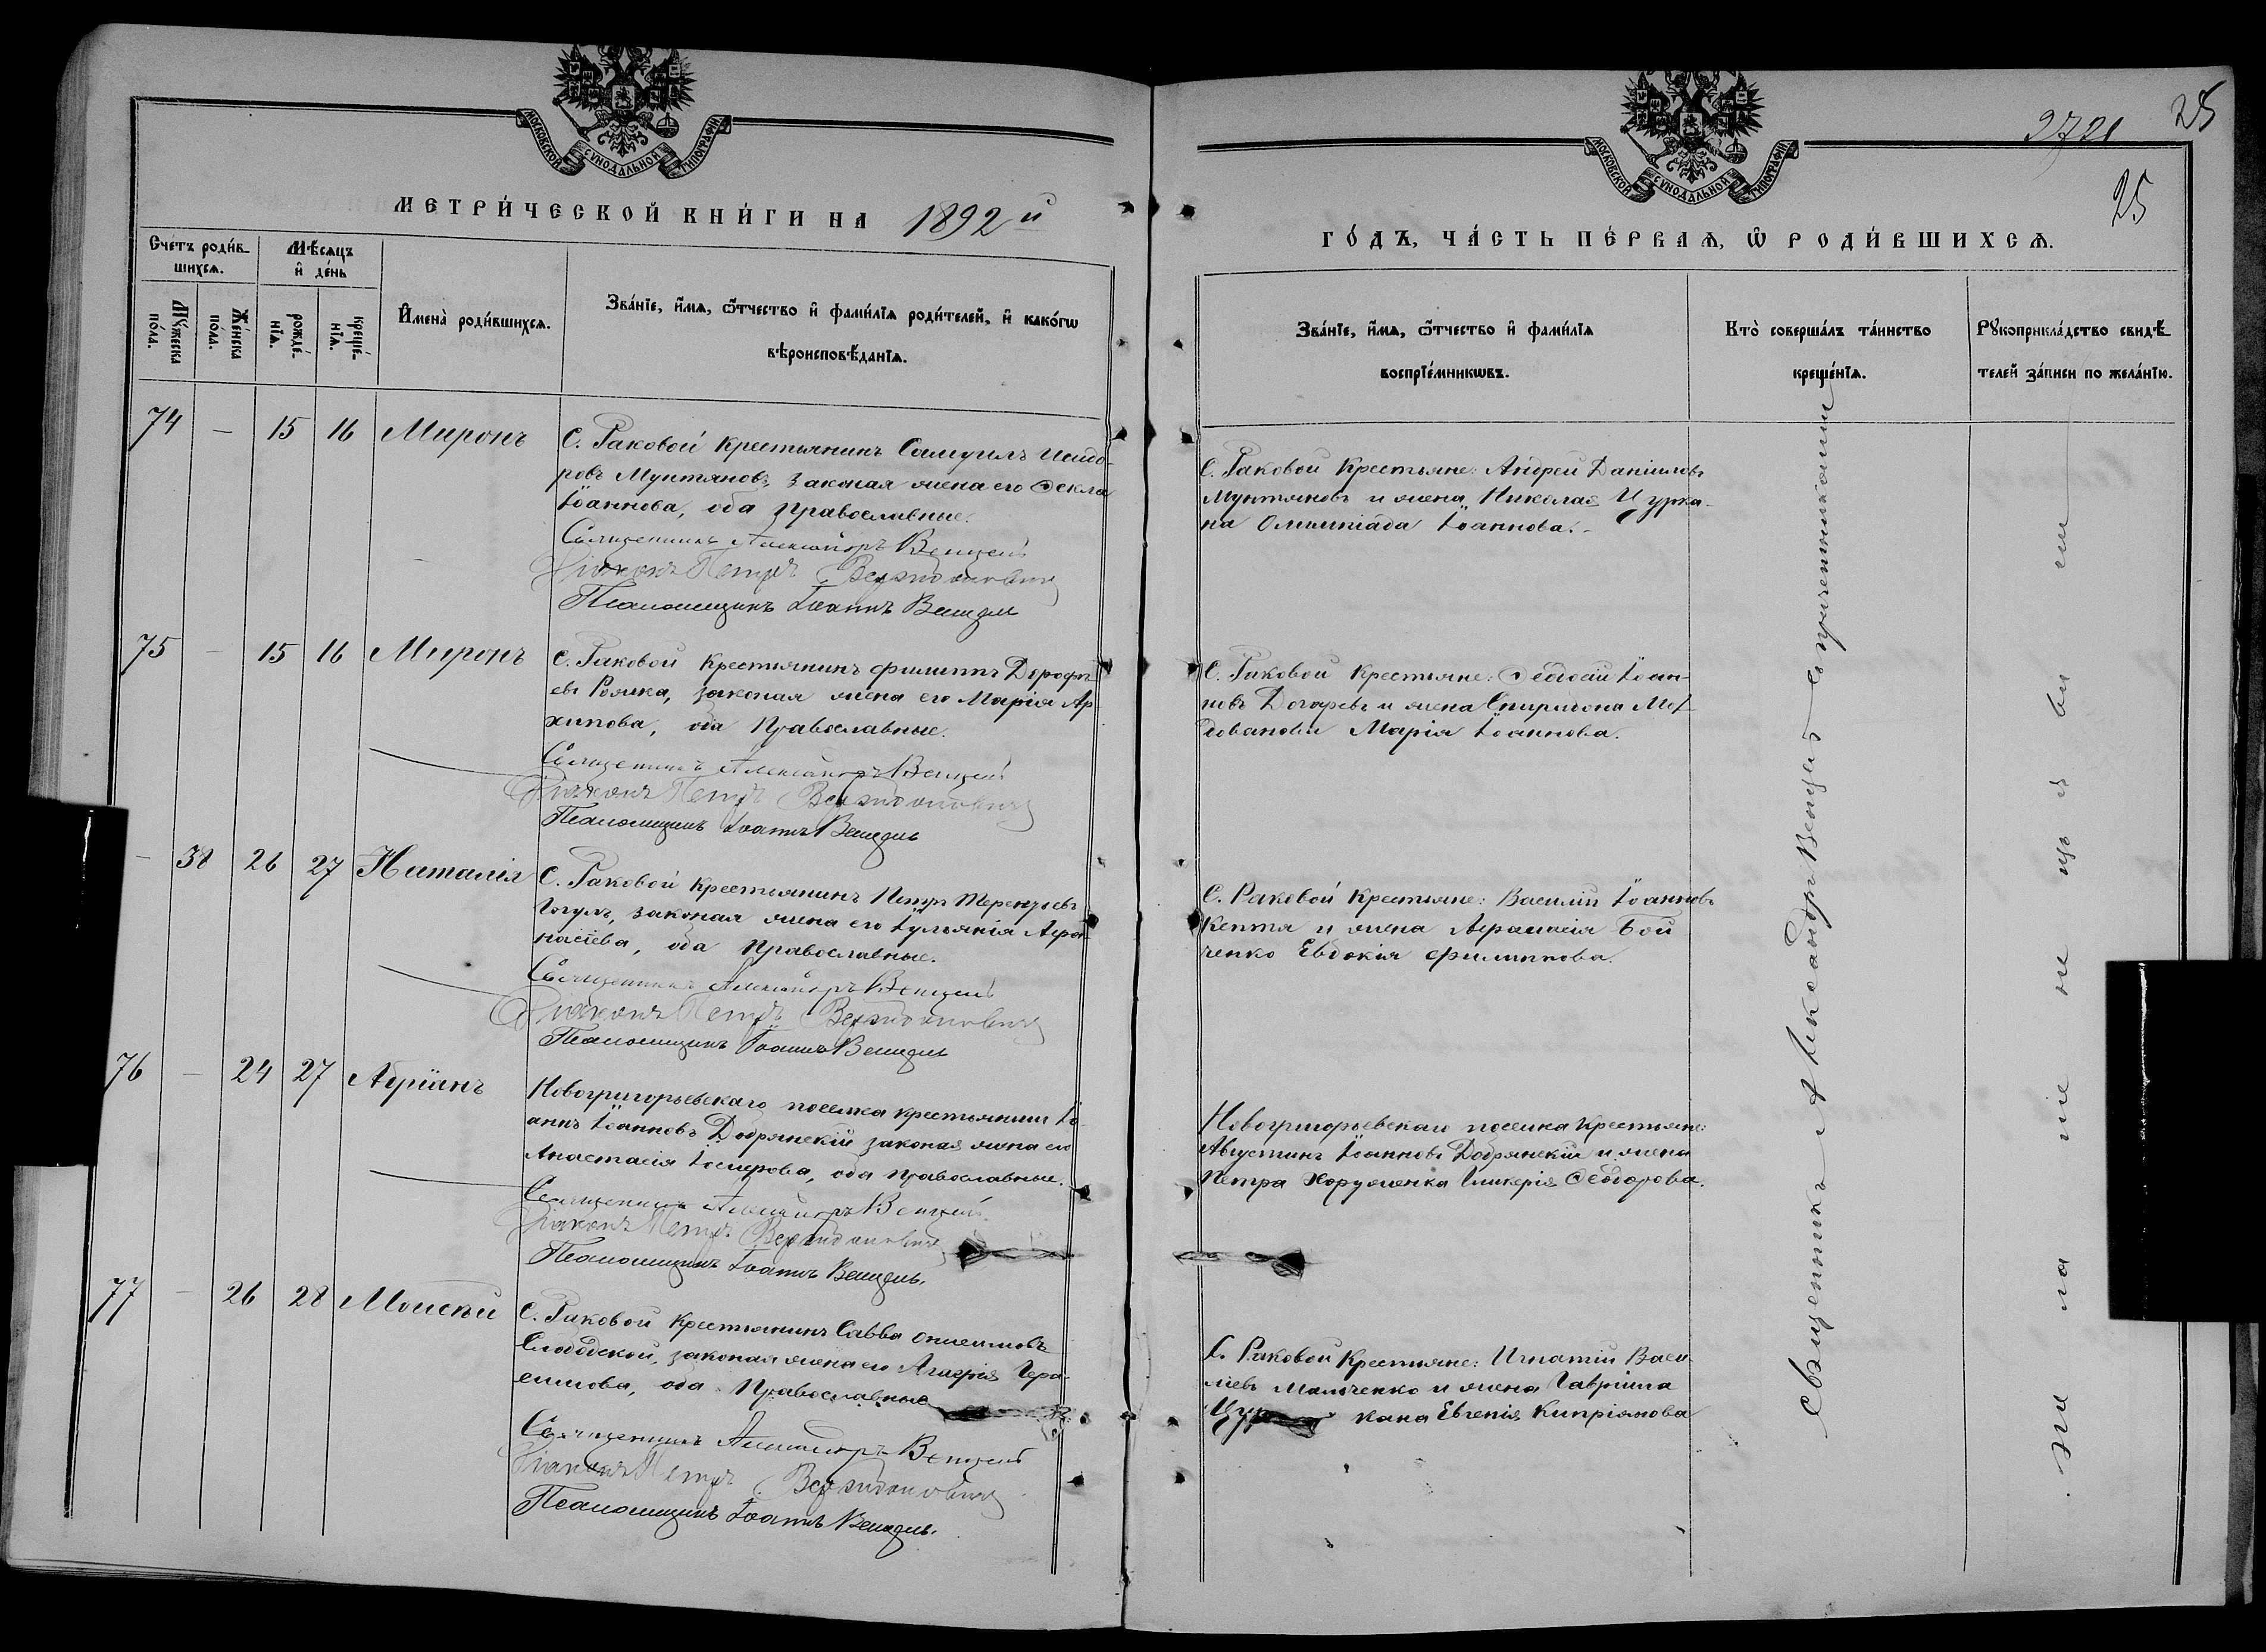 МОСКОВСКОЙ СУНОДАЛЬНОЙ ТИПОГРАФІИ
МЕТРИ́ЧЕСКОЙ КНИ́ГИ НА 1892 й
Сче́тъ роди́в-
шихсѧ.
Мѣ́сѧцъ
и҆ де́нь
Мꙋ́жеска
по́ла.
Же́нска
по́ла.
рожде́-
нїѧ.
креще́-
нїѧ.
И҆мена̀ роди́вшихсѧ.
Зва́нїе, и҆́мѧ, ѻ҆́тчество и҆ фами́лїѧ роди́телей, и҆ како́гѡ
вѣроисповѣ́данїѧ.
74 — 15 16 Миронъ
С. Раковой крестьянинъ Самуилъ Исидо-
ровъ Мунтяновъ, законая жена его Ѳекла
Іоаннова, оба православные.
Священникъ Александръ Венцель
Діаконъ Петръ
Псаломщикъ Іоаннъ Венцель
75 — 15 16 Миронъ
С. Раковой крестьянинъ Филиппъ Дорофѣ-
евъ законая жена его Марія Ар-
хипова, оба православные.
Священникъ Александръ Венцель
Діаконъ Петръ
Псаломщикъ Іоаннъ Венцель
— 38 26 27 Наталія
С. Раковой крестьянинъ Петръ Терентьевъ
законая жена его Іульянія Афа-
насіева, оба православные.
Священникъ Александръ Венцель
Діаконъ Петръ
Псаломщикъ Іоаннъ Венцель
76 — 24 27 Адріанъ
Новогригорьевскаго поселка крестьянинъ Іо-
аннъ Іоанновъ Добрянскій законая жена его
Анастасія оба православные.
Священникъ Александръ Венцель
Діаконъ Петръ
Псаломщикъ Іоаннъ Венцель.
77 — 26 28 Моисей
С. Раковой крестьянинъ Савва Онисимовъ
Слободской, законая жена его Агафія Гера-
симова, оба православные
Священникъ Александръ Венцель
Діаконъ Петръ
Псаломщикъ Іоаннъ Венцель.
25
25
МОСКОВСКОЙ СУНОДАЛЬНОЙ ТИПОГРАФІИ
ГО́ДЪ, ЧА́СТЬ ПЕ́РВАѦ, Ѡ҆ РОДИ́ВШИХСѦ.
Зва́нїе, и҆́мѧ, ѻ҆́тчество и҆ фами́лїѧ
воспрїе́мникѡвъ.
Кто̀ соверша́лъ та́инство
креще́нїѧ.
Рꙋкоприкла́дство свидѣ́-
телей за́писи по жела́нїю.
С. Раковой крестьяне: Андрей Даніиловъ
Мунтяновъ и жена Николая Цурка-
на Олимпіада Іоаннова.
С. Раковой крестьяне: Ѳеодосій Іоан-
новъ и жена Спиридона
Марія Іоаннова.
С. Раковой крестьяне: Василій Іоанновъ
Кептя и жена Афанасія Бой-
ченко Евдокія Филиппова.
Новогригорьевскаго поселка крестьяне:
Августинъ Іоанновъ Добрянскій и жена
Петра Хоруженка Гликерія Ѳеодорова.
С. Раковой крестьяне: Игнатій Васи-
ліевъ Мальченко и жена Гавріила
Цур кана Евгенія Кипріянова
Священникъ Александръ Венцель съ причетниками